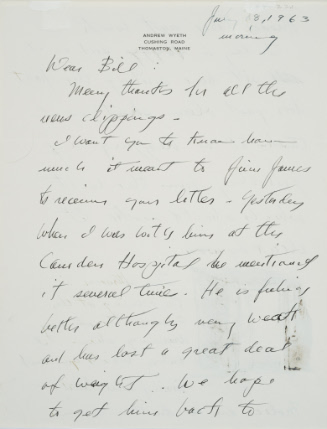 1963
morning
ANDREW WYETH
CUSHING ROAD
THOMASTON, MAINE
Dear Bill:
Many thanks for all the
news clippings –
I want you to know how
much it meant to James
to receive your letter – yesterday
when I was with him at the
Camden Hospital he mentioned
it several times. He is feeling
better although very weak
and has lost a great deal
of weight. We hope
to get him back to